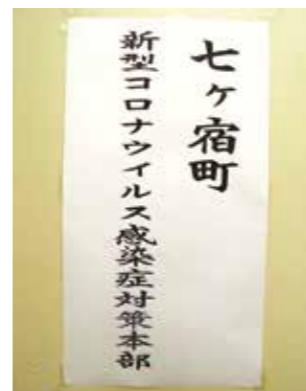 七ヶ宿町
新型コロナウイルス感染症対策本部